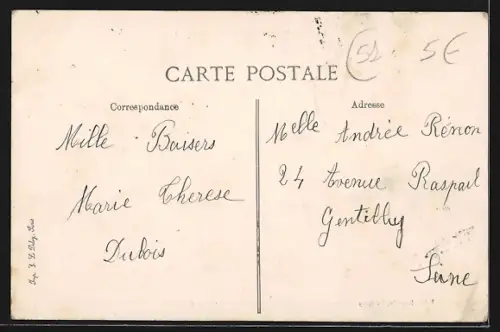 51 5€
CARTE POSTALE
Correspondance
Mille Baisers
Marie Therese
Dubois
Adresse
Melle Andrée Rénon
24 Avenue Raspail
Gentilly
Seine